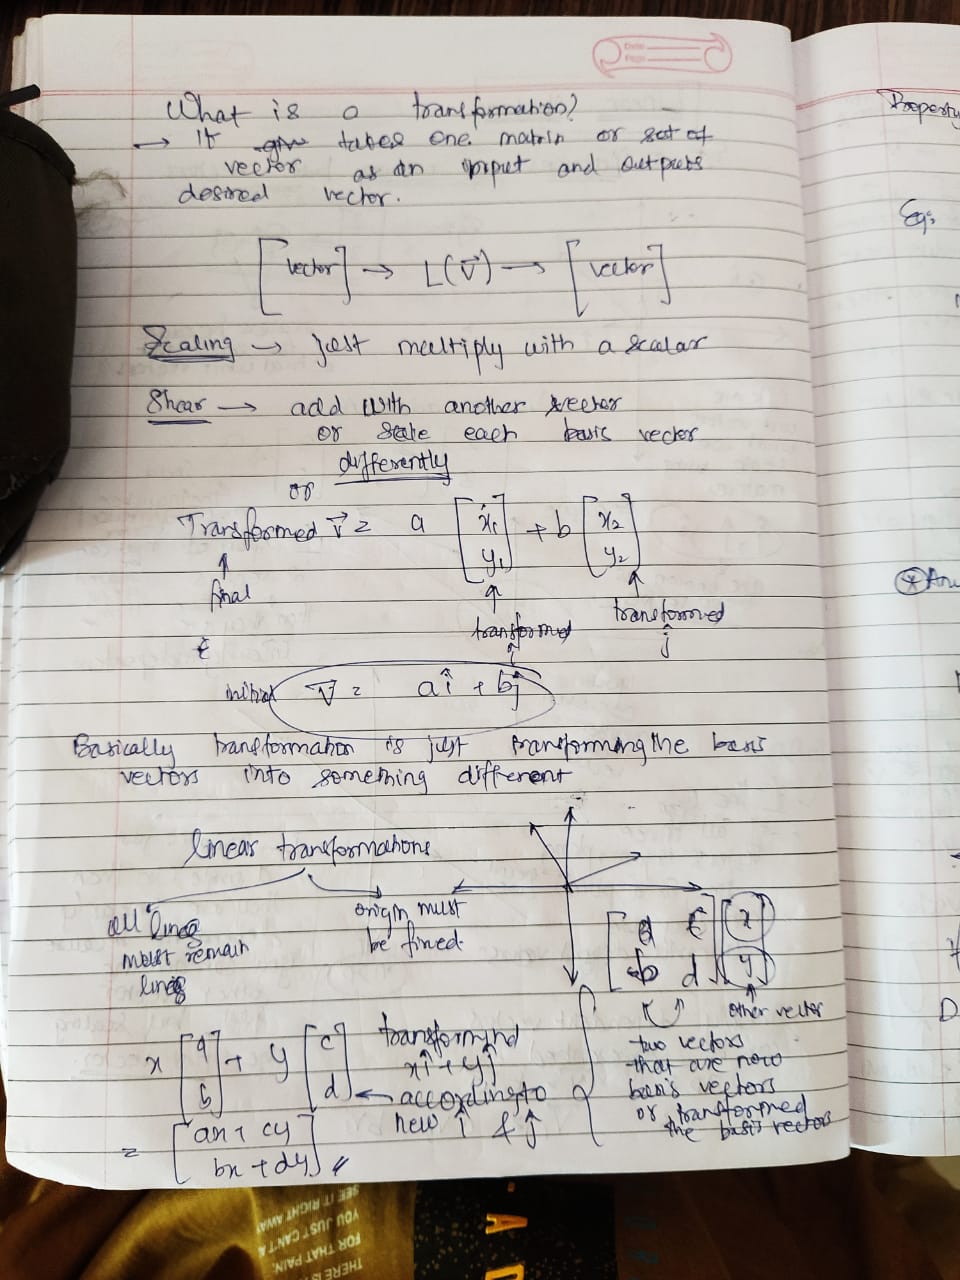 Date
Page
What is a transformation?
→ It takes one matrix or set of
vector as an input and outputs
desired vector.
[vector] → L(v⃗) → [vector]
Scaling → just multiply with a scalar
Shear → add with another vector
or scale each basis vector
differently
or
Transformed v⃗ = a [x₁ y₁] + b [x₂ y₂]
↑ final
↑ transformed î
↑ transformed ĵ
initial v⃗ = aî + bĵ
Basically transformation is just transforming the basis
vectors into something different
linear transformations
all lines
must remain
lines
origin must
be fixed.
[a c b d] [x y]
other vector
two vectors
that are new
basis vectors
or transformed
the basis vectors
x [a b] + y [c d]
transforming
xî + yĵ
← according to
new î & ĵ
= [ax + cy bx + dy]
Property
Eg:
D
SEE IT RIGHT AWAY
YOU JUST CAN'T
FOR THAT PAIN.
THERE IS
A